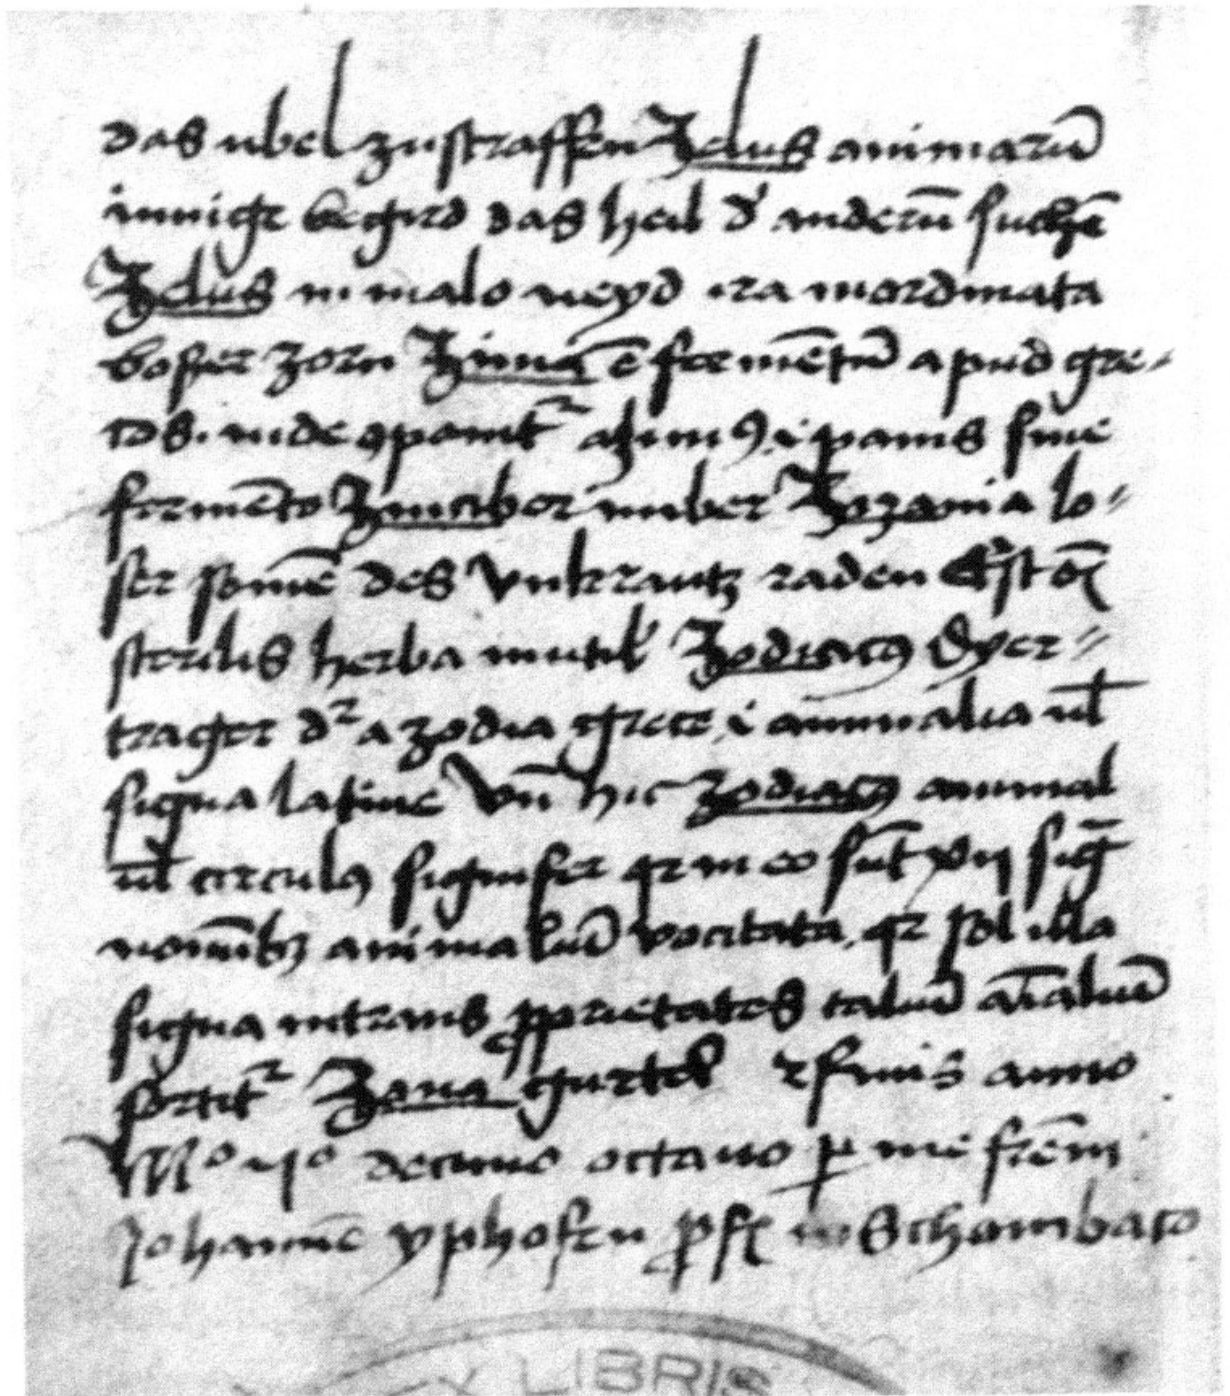 das ubel zustraffen Zelus animarū
innige begird das heil d' anderū suchē
Zelus in malo neyd ira inordinata
boser zorn Zima ē fermētū apud gre-
cos. inde ꝯponit᷑ azimꝰ .i. panis sine
fermēto Zinciber imber Zizania lo-
ser somē des vnkrautz raden
sterilis herba inutil' Zodiacꝰ dyer-
trager dr̄ a zodia grece .i. animalia ul̄
signa latine Vn̄ hic zodiacꝰ animal
ul̄ circulꝰ signifer qꝛ in eo sūt xij siḡ
nomībꝫ animaliū vocitata, qꝛ sol illa
signa intrans ꝓprietates taliū aīaliū
sortit᷑ Zona gurtel ꝛ finis anno
decimo octauo ꝑ me frēm
Johannē yphofen ꝓfꝭ in Schombaco
EX LIBRIS